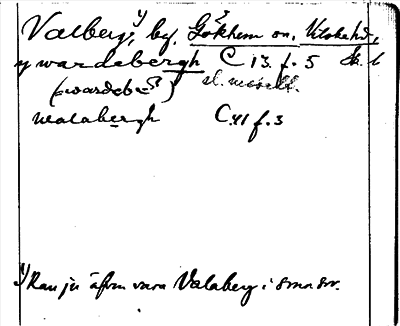 Valberg, y) by. Gökhem sn. Vilske hd,
y wardebergh C 13 f. 5 Sk. b
(=wardeb=?)
walabergh C 41 f. 3
y) Kan ju äfven vara Valaberg i smn sn.